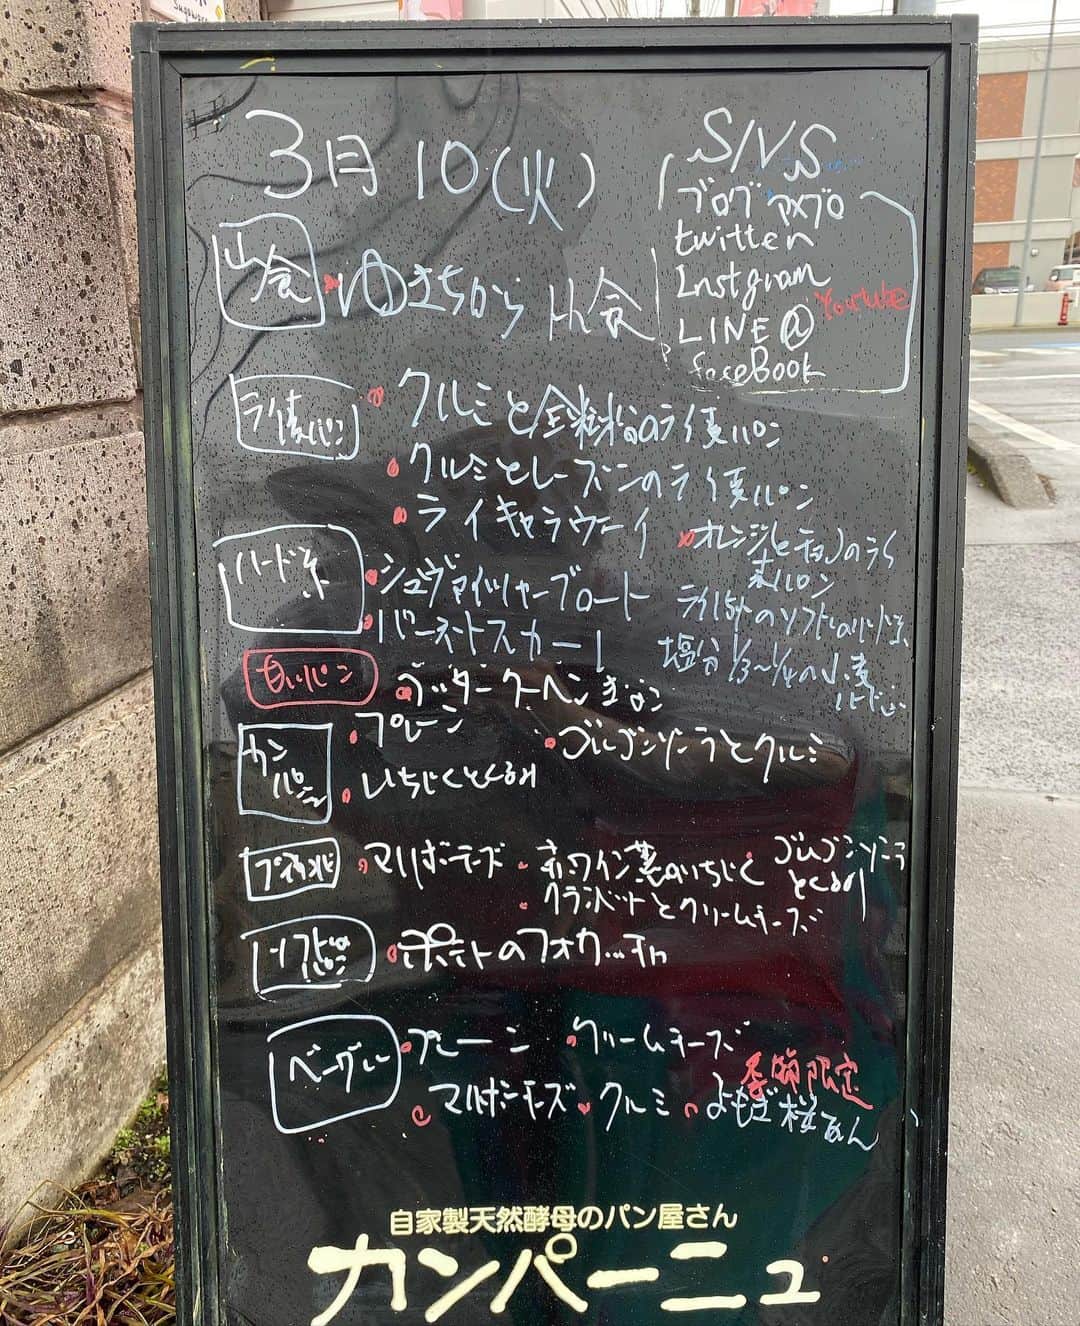 3月10(火)
SNS
ブログ アメブロ
twitter
Instgram
Youtube
LINE@
faceBook
山食
ゆきちから 山食
ライ麦パン
クルミと全粒粉のライ麦パン
クルミとレーズンのライ麦パン
ライキャラウェイ
オレンジ(とチョコ)のライ麦パン
ハード系
シュヴァイツァーブロート
バーネットスカーレ
ライ15%のソフト
塩分1/3〜1/4の小麦
甘いパン
ブッタークーヘン
カンパーニュ
プレーン
ゴルゴンゾーラとクルミ
いちじくとくるみ
プチ
マルボーチーズ
赤ワイン煮のいちじく
ゴルゴンゾーラとくるみ
クランベリーとクリームチーズ
ソフトパン
ポテトのフォカッチャ
ベーグル
プレーン
クリームチーズ
季節限定
マルボーチーズ
クルミ
よもぎ桜あん
自家製天然酵母のパン屋さん
カンパーニュ